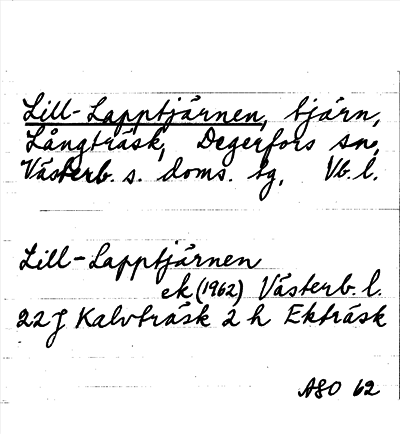 Lill-Lapptjärnen, tjärn,
Långträsk, Degerfors sn,
Västerb. s. doms. tg, Vb. l.
Lill-Lapptjärnen
ek (1962) Västerb. l.
22J Kalvträsk 2 h Ekträsk
ASO 62